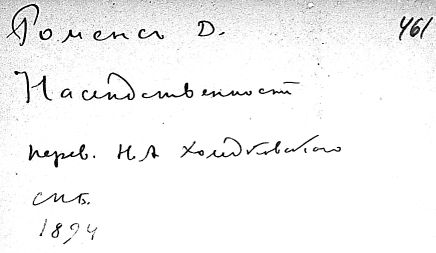 Роменс Д. 461
Наследственност
перев. Н А Холодковского
СПб.
1894